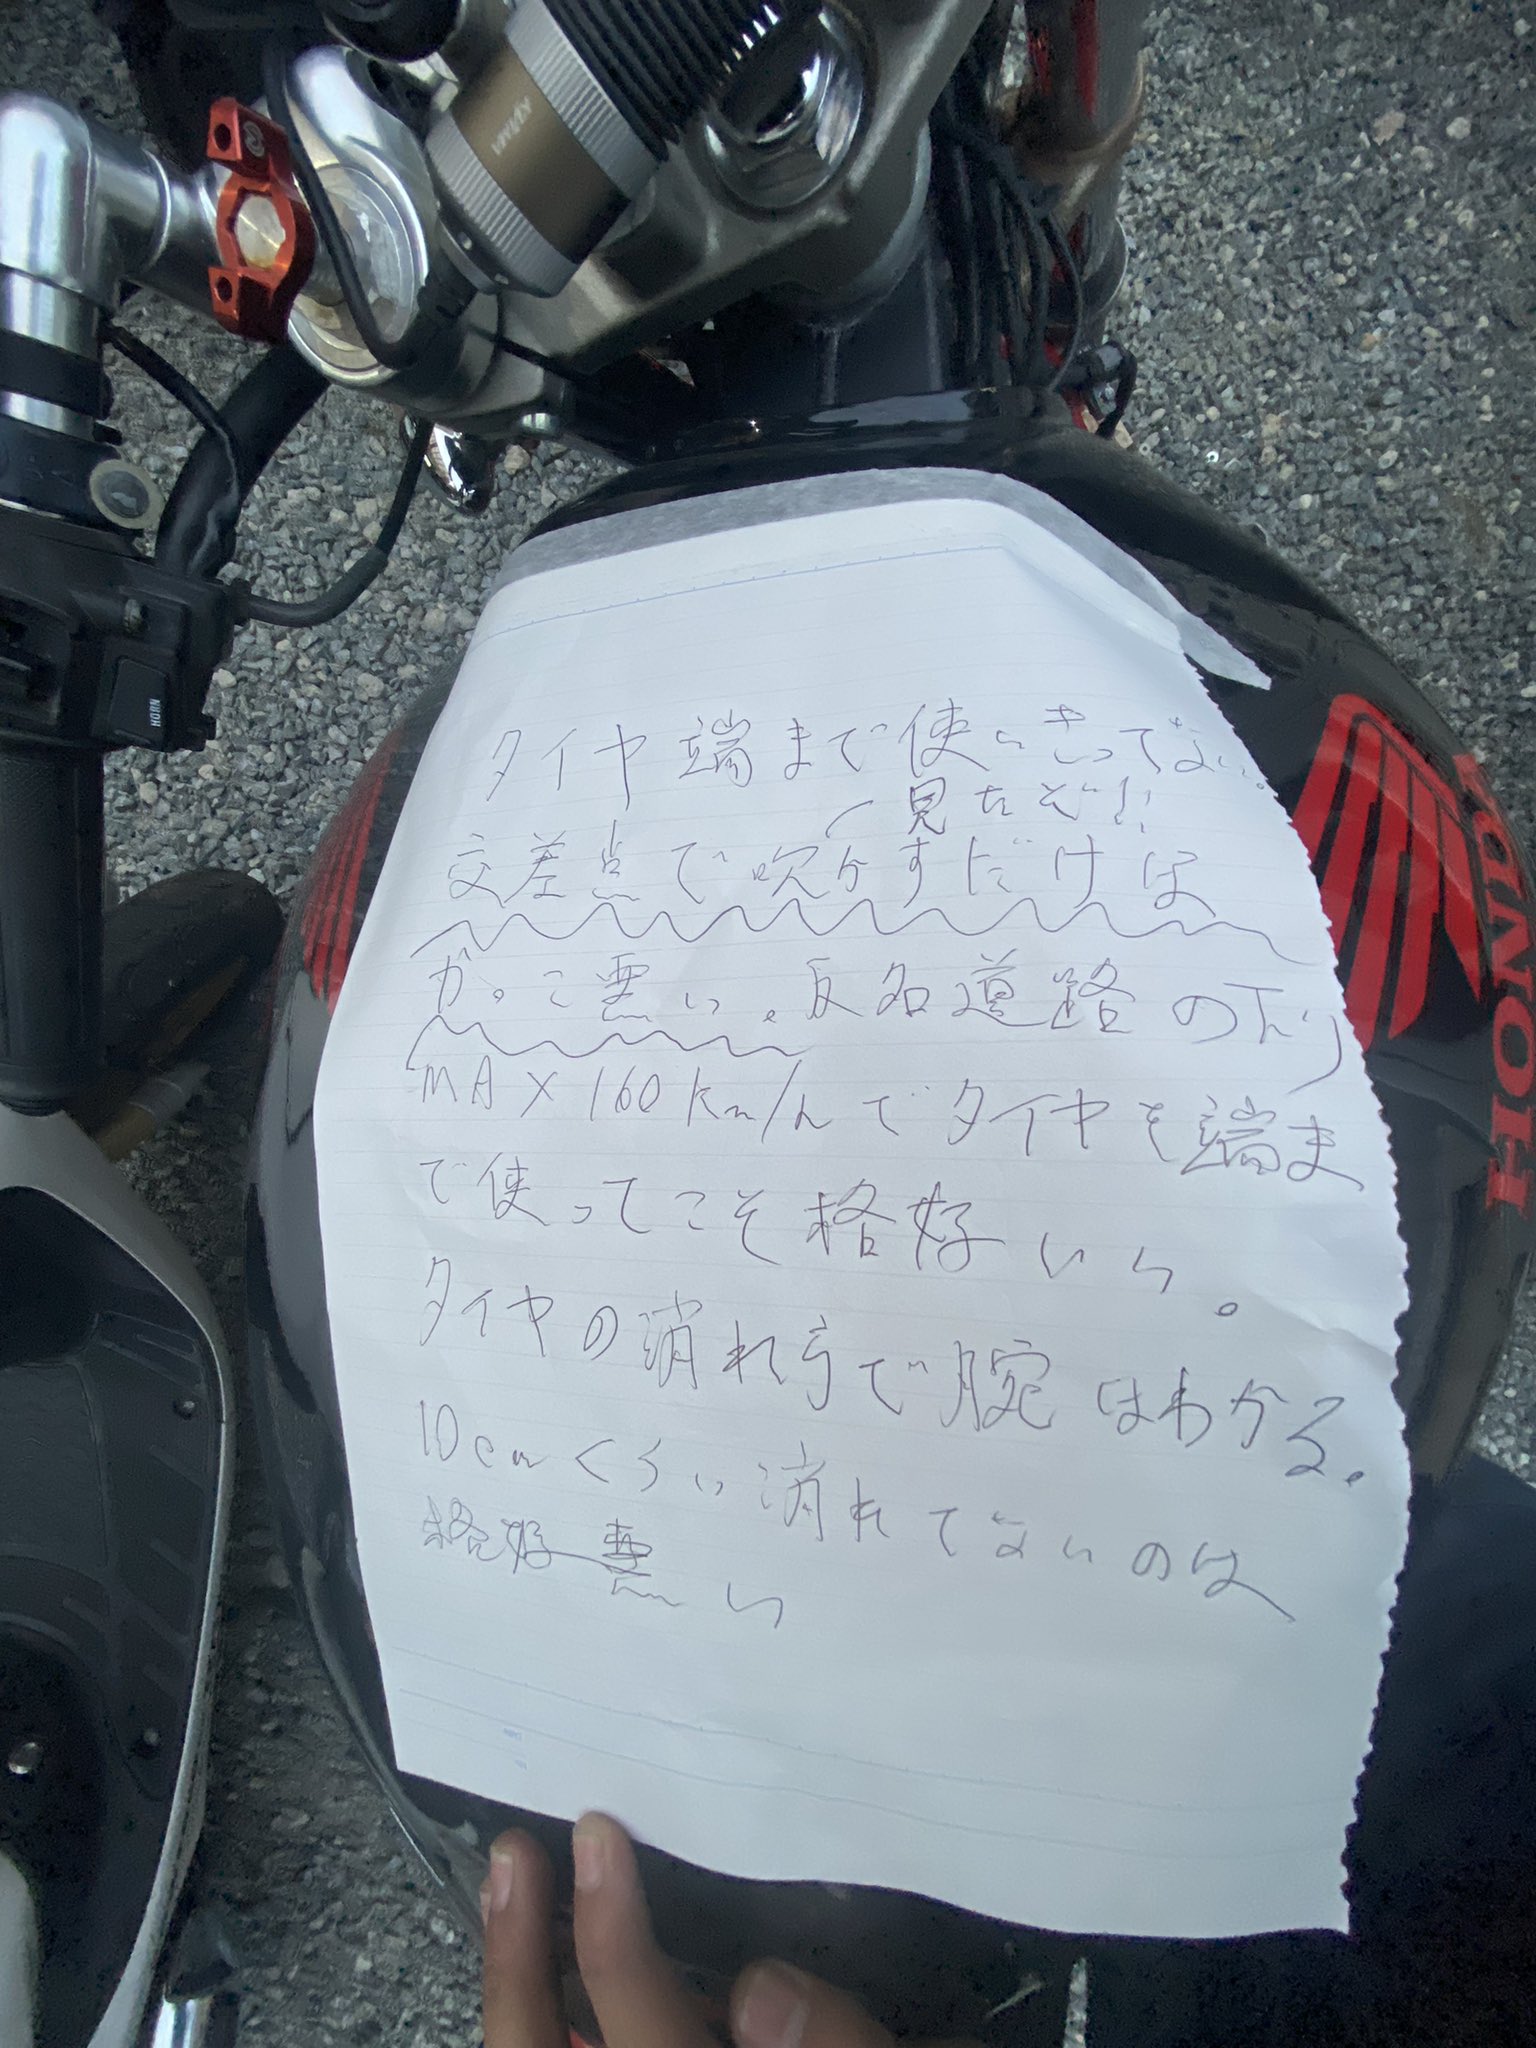 kywa
HORN
HONDA
タイヤ端まで使いきってない。
見たぞ!!
交差点で吹かすだけは
かっこ悪い。反名道路の下り
MAX160km/hでタイヤを端ま
で使ってこそ格好いい。
タイヤの消れ方で腕はわかる。
10cmくらい消れてないのは
格好悪い